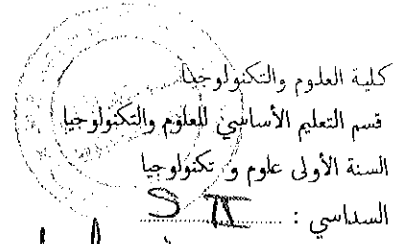 كلية العلوم والتكنولوجيا
قسم التعليم الأساسي للعلوم والتكنولوجيا
السنة الأولى علوم و تكنولوجيا
السداسي : S II